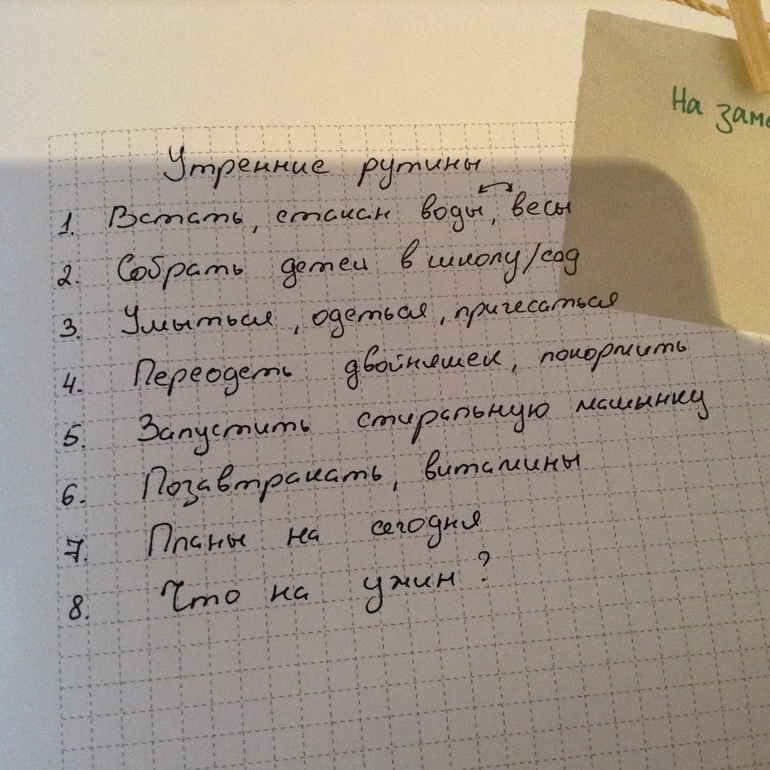 На
Утренние рутины
1. Встать, стакан воды, весы
2. Собрать детей в школу/сад
3. Умыться, одеться, причесаться
4. Переодеть двойняшек, покормить
5. Запустить стиральную машинку
6. Позавтракать, витамины
7. Планы на сегодня
8. Что на ужин?